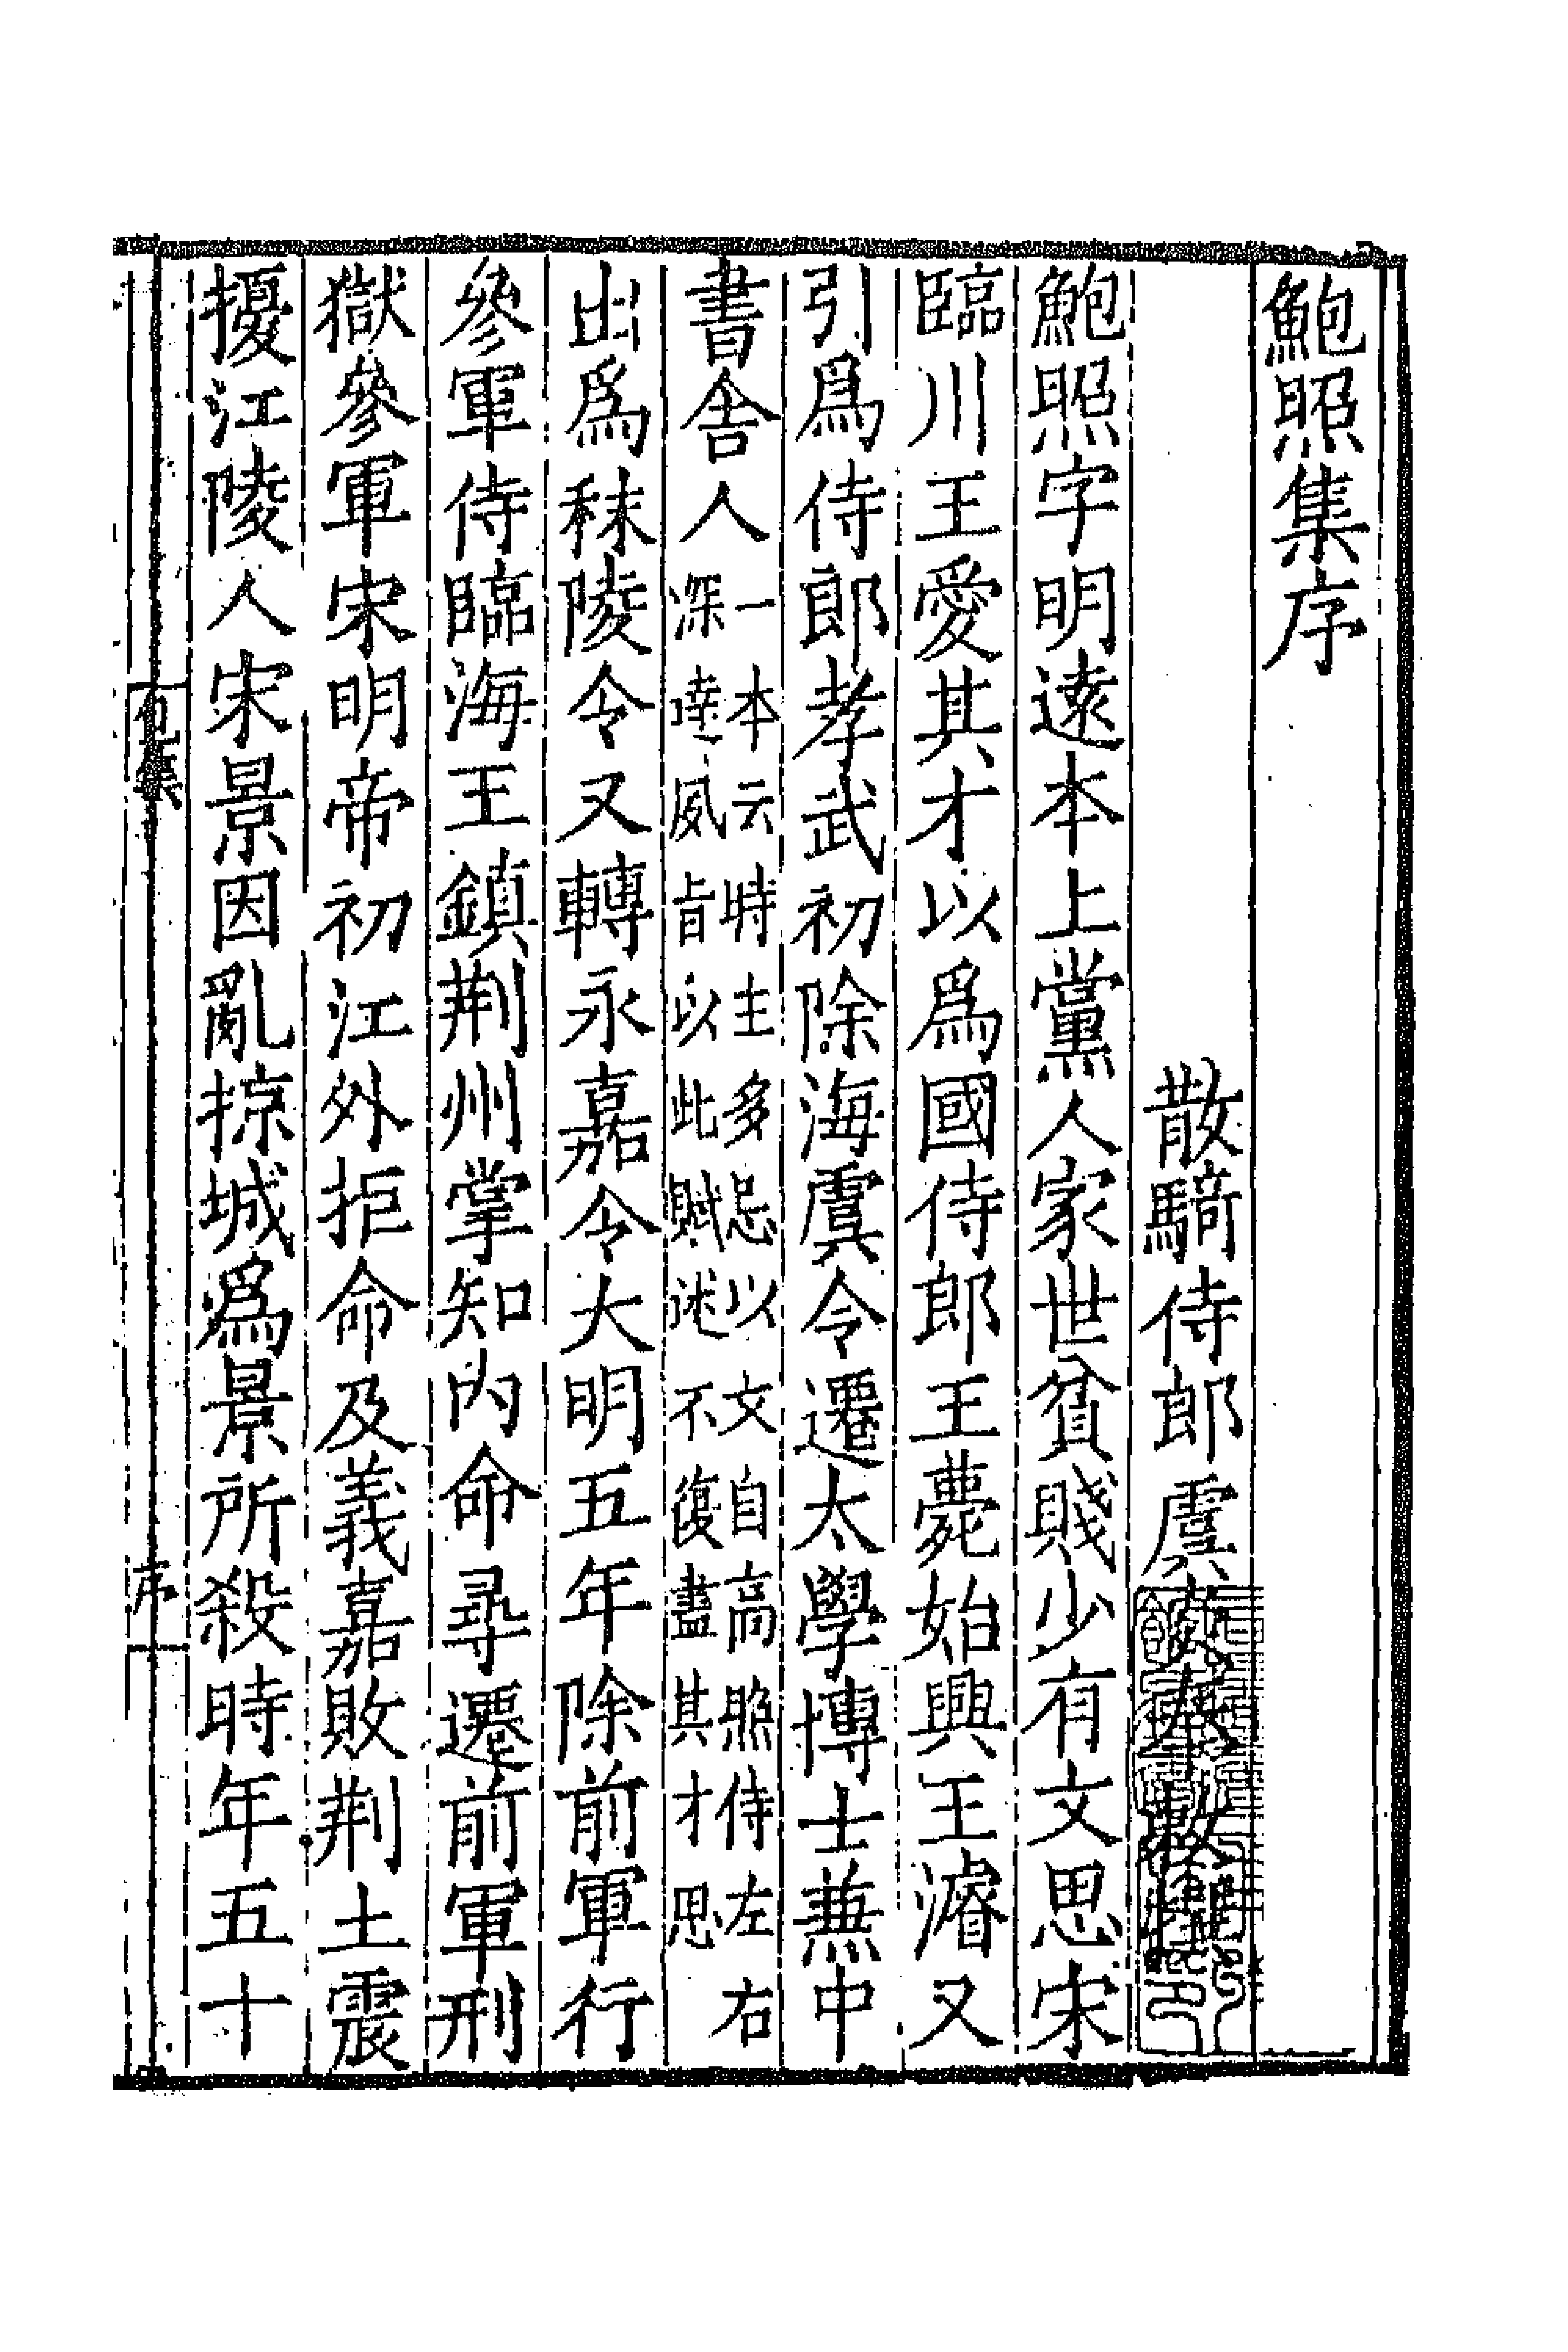 鮑照集序
散騎侍郎虞炎奉敕撰
鮑照字明遠本上黨人家世貧賤少有文思宋
臨川王愛其才以爲國侍郎王薨始興王濬又
引爲侍郎孝武初除海虞令遷太學博士兼中
書舍人
一本云時主多忌以文自高照侍左右
深達風旨以此賦述不復盡其才思
出爲秣陵令又轉永嘉令大明五年除前軍行
參軍侍臨海王鎮荆州掌知内命尋遷前軍刑
獄參軍宋明帝初江外拒命及義嘉敗荆土震
擾江陵人宋景因亂掠城爲景所殺時年五十
包集
序
一